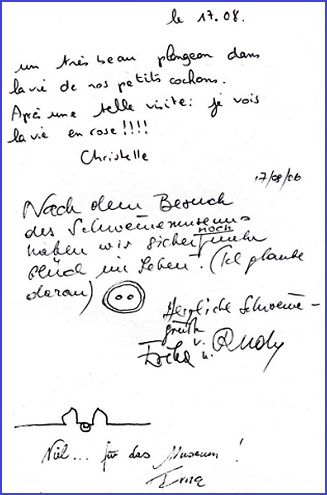 le 17.08.
un très beau plongeon dans
la vie de nos petits cochons.
Après une telle visite: je vois
la vie en rose!!!!
Christelle
17/08/06
Nach dem Besuch
des Schweinemuseums
haben wir sicher noch mehr
Glück im Leben. (Ich glaube
daran)
Herzliche Schweine-
grüße v.
Erika u. Rudy
... für das Museum!